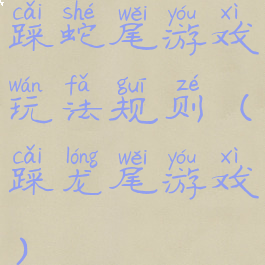 cǎi shé wěi yóu xì
踩蛇尾游戏
wán fǎ guī zé
玩法规则(
cǎi lóng wěi yóu xì
踩龙尾游戏
)